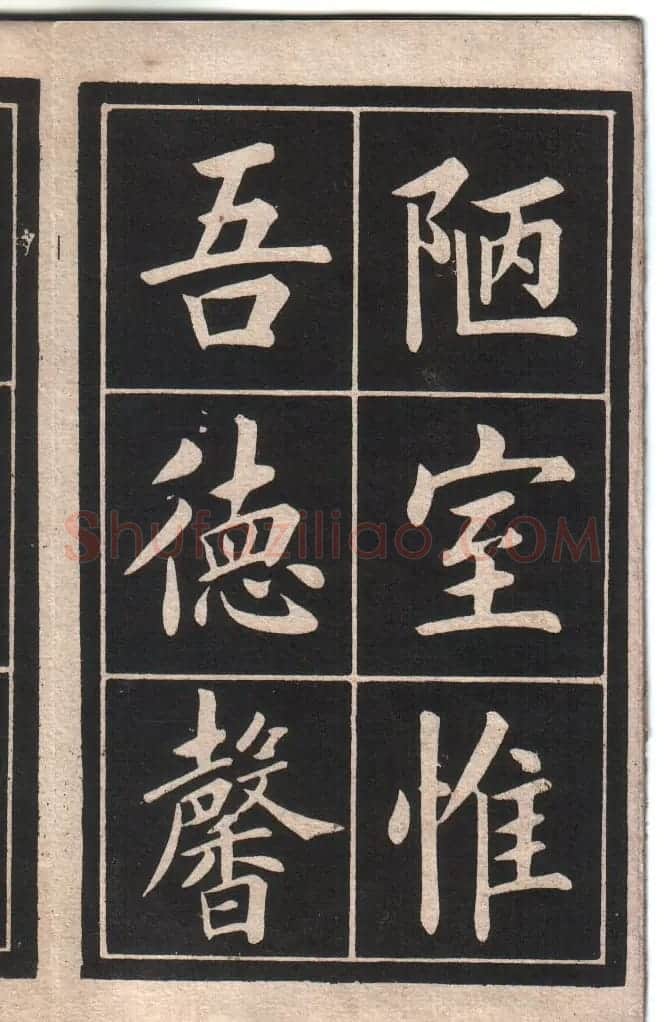 陋室惟
吾德馨
Shufaziliao.COM